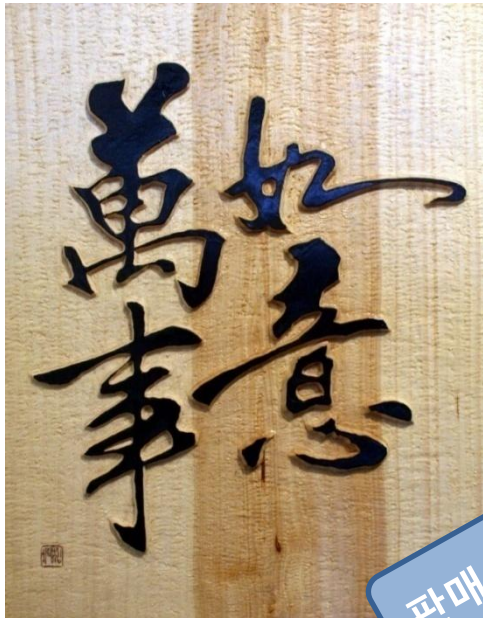 萬事
如意
판매